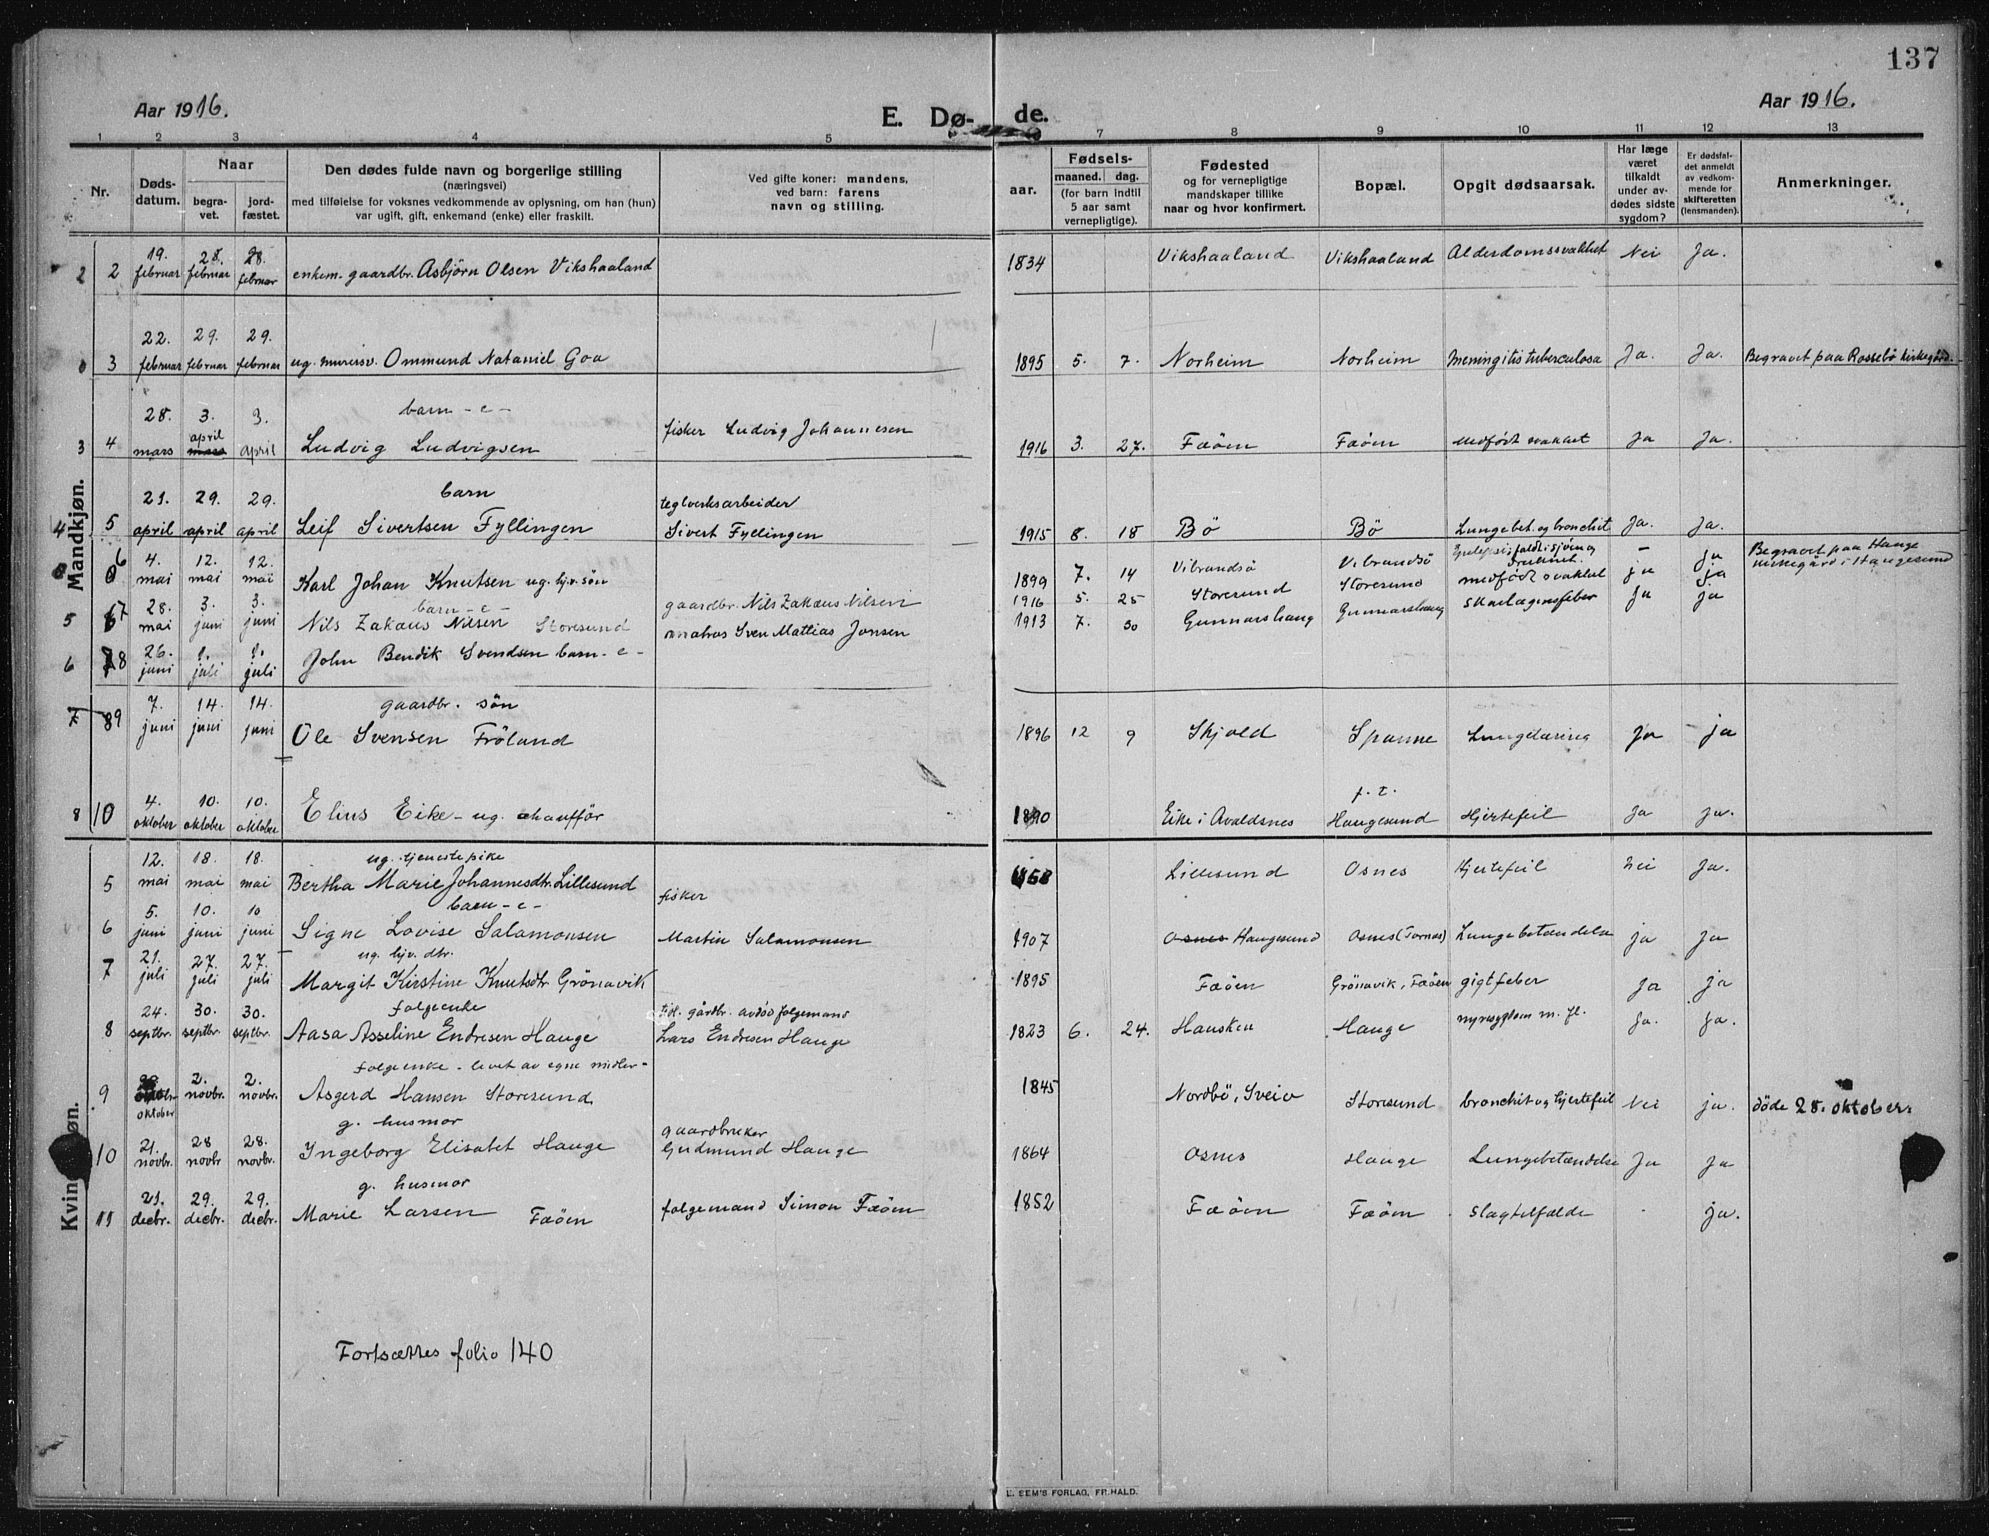 137
Aar 1916.
E. Dø- de.
Aar 1916.
1 2 3 4 5 7 8 9 10 11 12 13
Nr.
Døds-
datum.
Naar
begra-
vet.
jord-
fæstet.
Den dødes fulde navn og borgerlige stilling
(næringsvei)
med tilføielse for voksnes vedkommende av oplysning, om han (hun)
var ugift, gift, enkemand (enke) eller fraskilt.
Ved gifte koner: mandens,
ved barn: farens
navn og stilling.
aar.
Fødsels-
maaned. dag.
(for barn indtil
5 aar samt
vernepligtige).
Fødested
og for vernepligtige
mandskaper tillike
naar og hvor konfirmert.
Bopæl.
Opgit dødsaarsak.
Har læge
været
tilkaldt
under av-
dødes sidste
sygdom?
Er dødsfal-
det anmeldt
av vedkom-
mende for
skifteretten
(lensmanden).
Anmerkninger.
Mandkjøn.
2 2 19. februar 28. februar 28. februar enkem. gaardbr. Asbjörn Olsen Vikshaaland 1834 Vikshaaland Vikshaaland Alderdomssvakhet Nei Ja.
3 22. februar 29. februar 29. februar ug. murersv. Ommund Nataniel Goa 1895 5. 7. Norheim Norheim Meningitis tuberculosa Ja. Ja. Begravet paa Rossebö kirkegård.
barn - e -
3 4 28. mars 3. april mars 3. april Ludvig Ludvigsen fisker Ludvig Johannesen 1916 3. 27. Fæöen Fæöen medfödt svakhet Ja Ja.
barn
4 5 21. april 29. april 29. april Leif Sivertsen Fyllingen teglverksarbeider Sivert Fyllingen 1915 8. 18 Bö Bö Lungebet. og bronchit Ja. Ja.
6 4. mai 12. mai 12. mai Karl Johan Knutsen ug. hjv. sön 1899 7. 14 Vibrandsö Vibrandsö Epelepsi, faldt i sjöen og druknet. - Ja Begravet paa Hauge kirkegård i Haugesund
barn - e -
5 7 28. mai 3. juni 3. juni Nils Zakæus Nilsen Storesund gaardbr. Nils Zakæus Nilsen 1916 5. 25 Storesund Storesund medfödt svakhet ja ja
6 8 26. juni 1. juli 1. juli John Bendik Svendsen barn - e - matros Sven Mattias Jonsen 1913 7. 30 Gunnarshaug Gunnarshaug Skarlagensfeber Ja ja
gaardbr. sön
7 89 7. juni 14. juni 14. juni Ole Svensen Fröland 1896 12 9 Skjold Spanne Lungetæring Ja ja
8 10 4. oktober 10. oktober 10. oktober Elius Eike - ug. chaufför 1890 Eike i Avaldsnes p. t. Haugesund Hjertefeil Ja ja.
ug. tjenestepike
5 12. mai 18. mai 18. mai Bertha Marie Johannesdtr. Lillesund Lillesund Osnes Hjertefeil Nei Ja.
barn - e -
6 5. juni 10. juni 10 juni Signe Lovise Salamonsen fisker Martin Salamonsen 1907 Osnes Haugesund Osnes (Tornes) Lungebetændelse ja Ja
ug. hjv. dtr.
7 21. juli 27. juli 27. juli Margit Kirstine Knutsdtr Grönavik 1895 Fæöen Grönavik, Fæöen gigtfeber Ja ja
folgeenke
8 24. septbr. 30. septbr. 30. septbr. Aasa Asseline Endresen Hauge tidl. gårdbr. avdöd folgemand Lars Endresen Hauge 1823 6. 24. Hausken Hauge nyresygdom m. fl. Ja. Ja.
folgeenke - levet av egne midler -
9 oktober 2. novbr. 2. novbr. Asgerd Hansen Storesund 1845 Nordbö, Sveio Storesund bronchit og hjertefeil Nei ja. döde 28. oktober.
g. husmor
10 21. novbr. 28 novbr 28. novbr. Ingeborg Elisabet Hauge gaardbruker Gudmund Hauge 1864 Osnes Hauge Lungebetændelse Ja ja
g. husmor
11 21. decbr. 29. decbr. 29. decbr. Marie Larsen Fæöen folgemand Simon Fæöen 1852 Fæöen Fæöen Slagtilfælde ja.
Fortsættes folio 140
E. SEM'S FORLAG, FR.HALD.